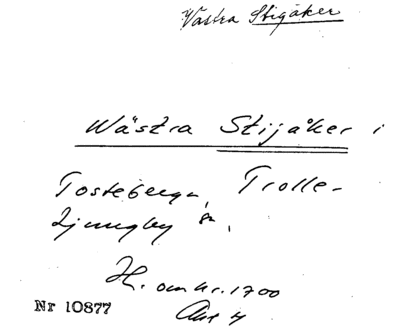 Västra Stigåker
Wästra Stijåker i
Tosteberga, Trolle-
Ljungby sn.
H. omkr. 1700
Nr 10877